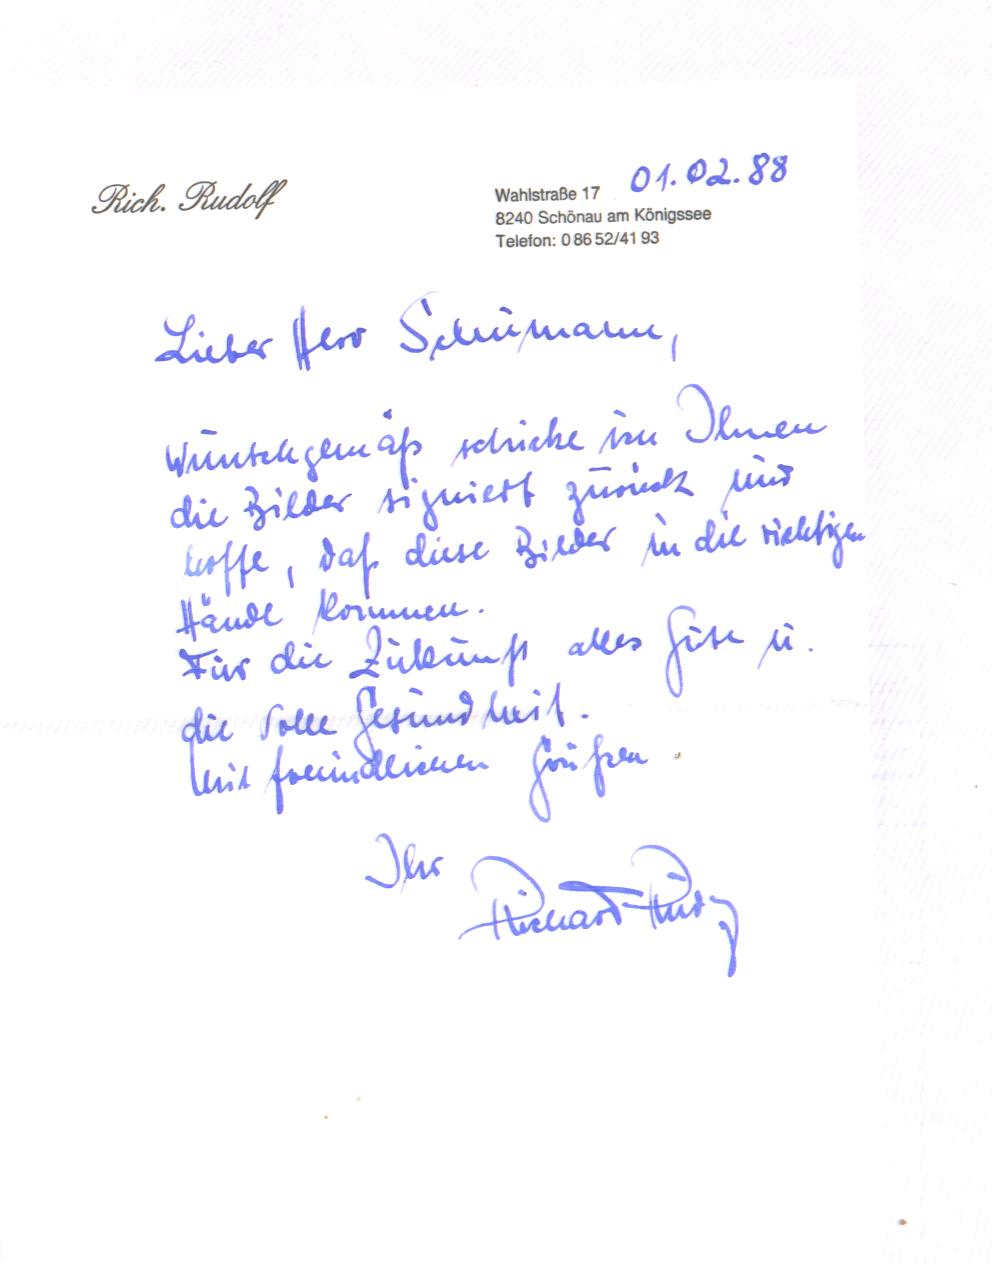 Rich. Rudolf
Wahlstraße 17
01.02.88
8240 Schönau am Königssee
Telefon: 0 86 52/41 93
Lieber Herr Schumann,
Wunschgemäß schicke ich Ihnen
die Bilder signiert zurück und
hoffe, daß diese Bilder in die richtigen
Hände kommen.
Für die Zukunft alles Gute u.
die volle Gesundheit.
Mit freundlichen Grüßen.
Ihr
Richard Rudolf